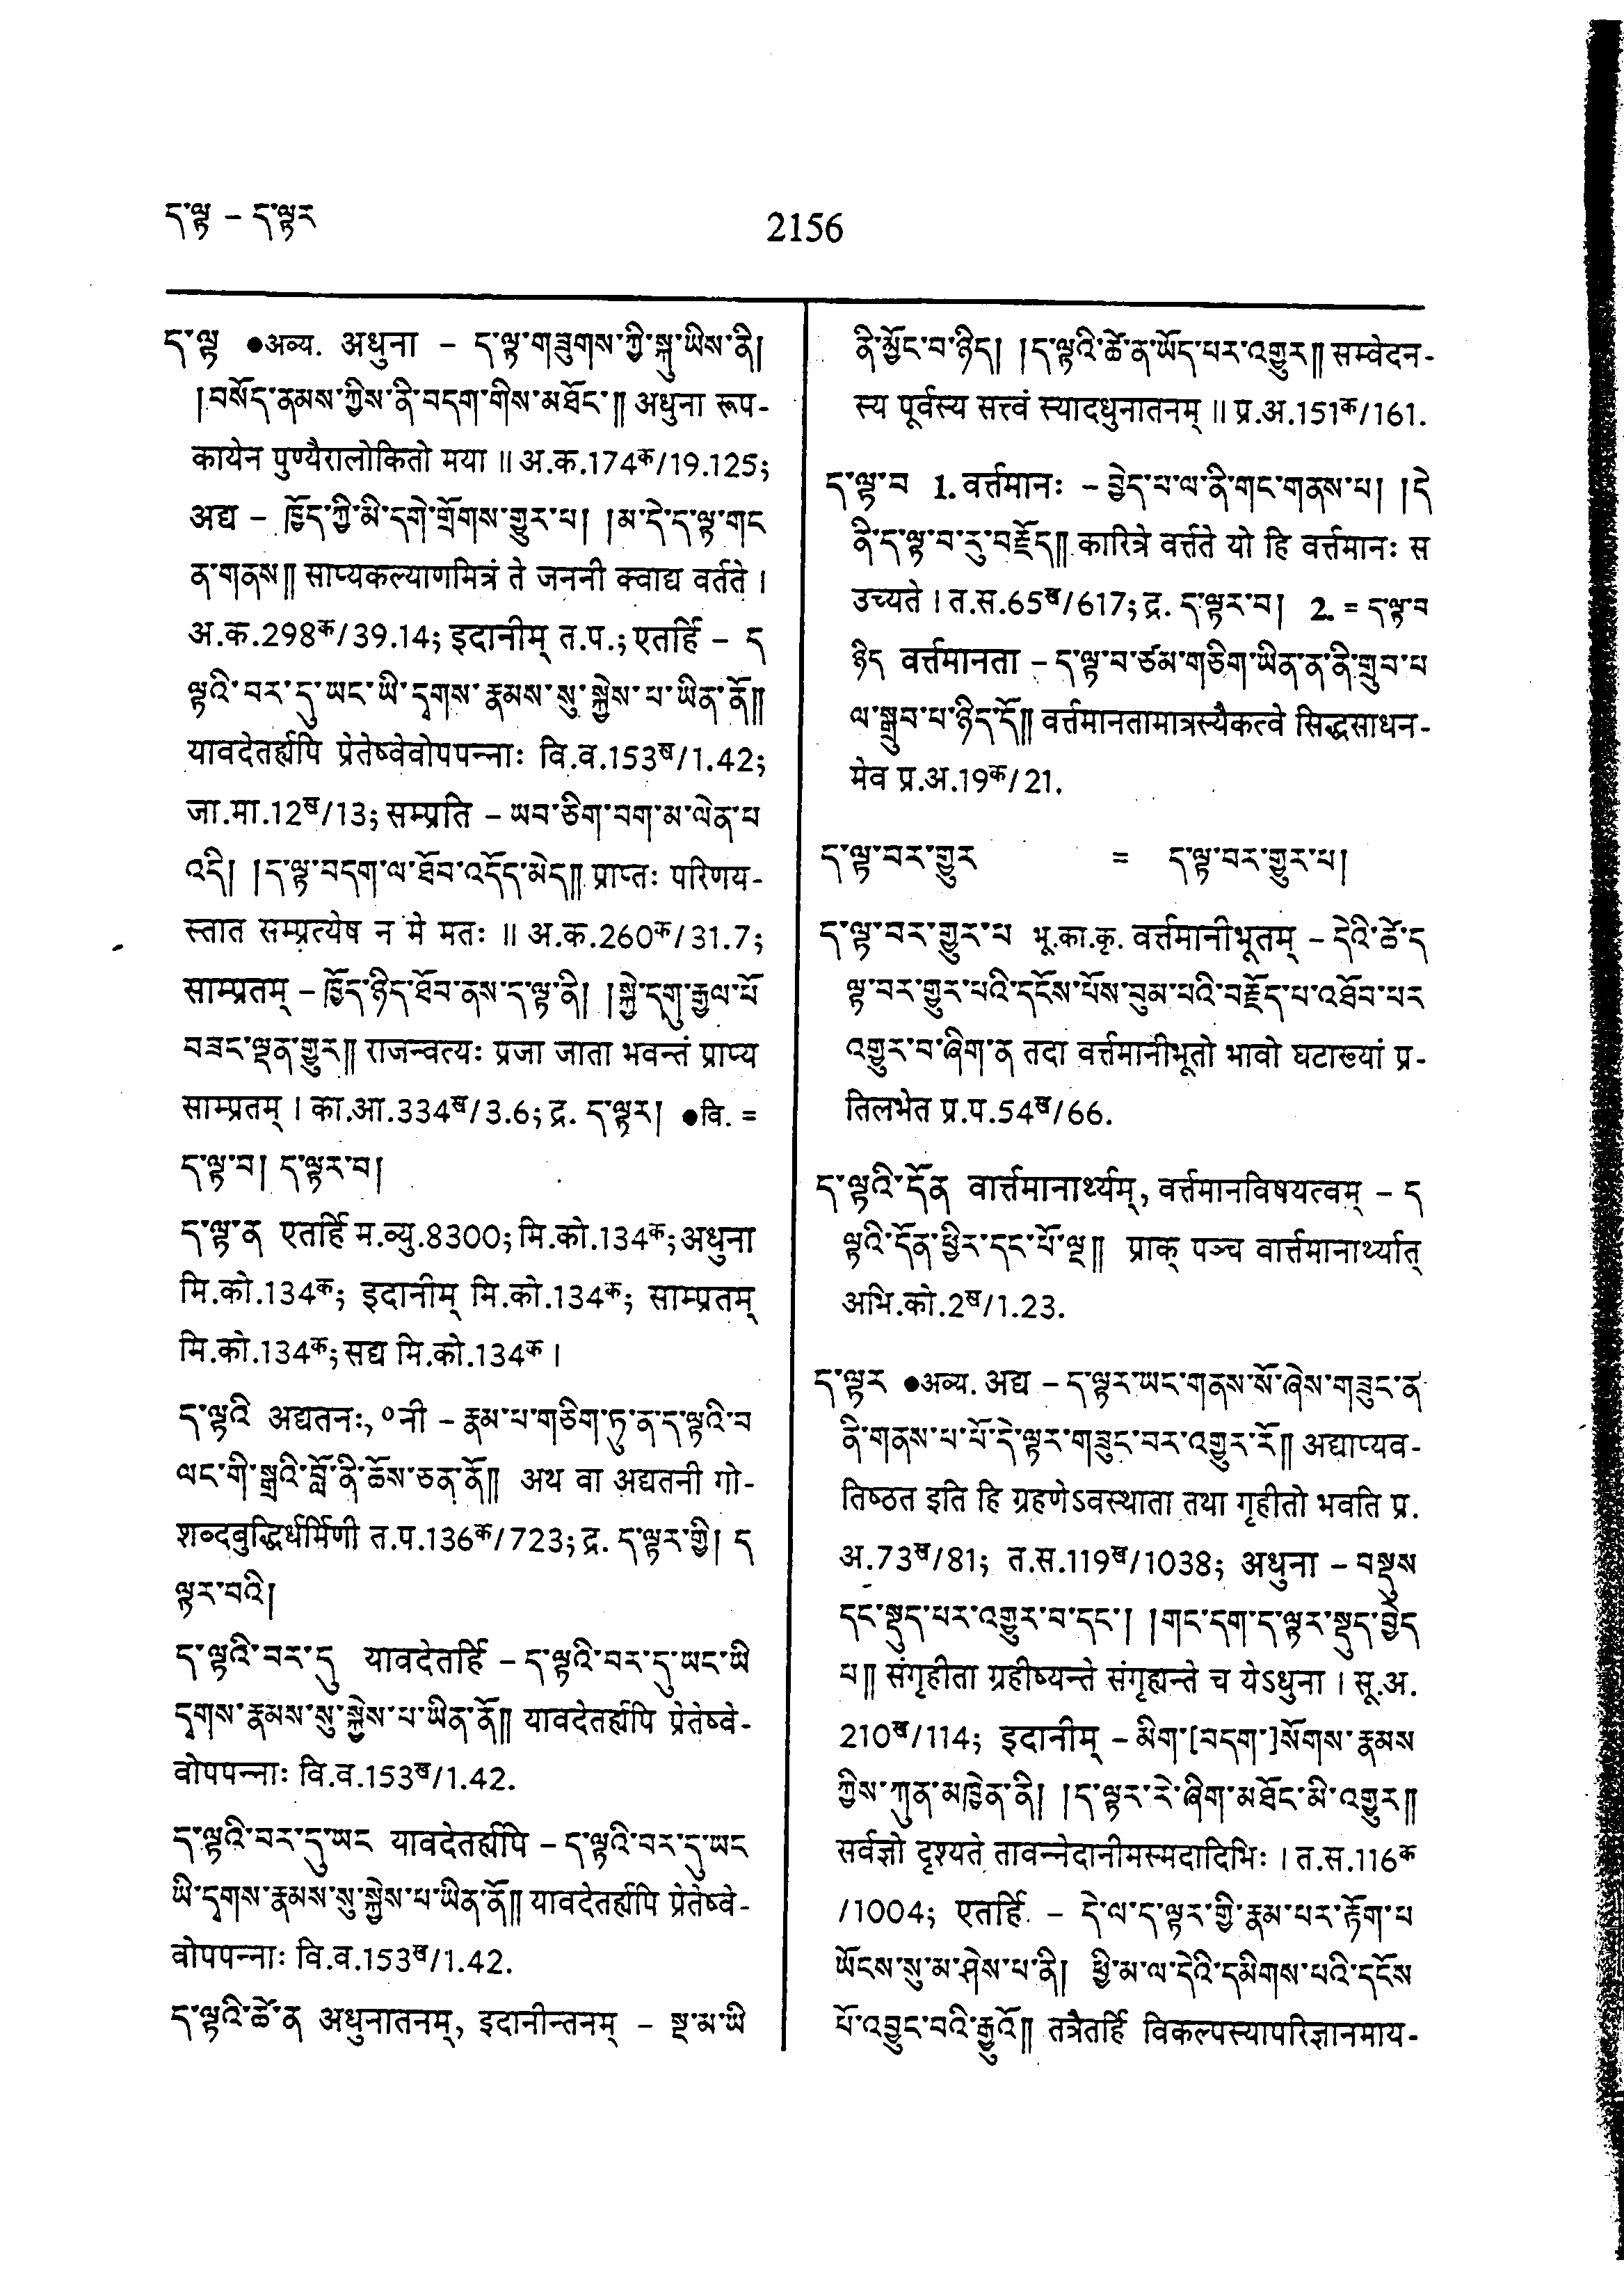 ད་ལྟ – ད་ལྟར
2156
ད་ལྟ ●अव्य. अधुना – ད་ལྟ་གཟུགས་ཀྱི་སྐུ་ཡིས་ནི།
།བསོད་ནམས་ཀྱིས་ནི་བདག་གིས་མཐོང་༎ अधुना रूप-
कायेन पुण्यैरालोकितो मया ॥ अ.क.174ᵃ/19.125;
अद्य – ཁྱོད་ཀྱི་མི་དགེ་གྲོགས་གྱུར་པ། །མ་དེ་ད་ལྟ་གང
ན་གནས༎ साप्यकल्याणमित्रं ते जननी क्वाद्य वर्तते ।
अ.क.298क/39.14; इदानीम् त.प.; एतर्हि – ད
ལྟའི་བར་དུ་ཡང་ཡི་དྭགས་རྣམས་སུ་སྐྱེས་པ་ཡིན་ནོ༎
यावदेतर्ह्यपि प्रेतेष्वेवोपपन्नाः वि.व.153ख/1.42;
जा.मा.12ख/13; सम्प्रति – ཡབ་ཅིག་བག་མ་ལེན་པ
འདི། །ད་ལྟ་བདག་ལ་ཐོབ་འདོད་མེད༎ प्राप्तः परिणय-
स्तात सम्प्रत्येष न मे मतः ॥ अ.क.260क/31.7;
साम्प्रतम् – ཁྱོད་ཉིད་ཐོབ་ནས་ད་ལྟ་ནི། །སྐྱེ་དགུ་རྒྱལ་པོ
བཟང་ལྡན་གྱུར༎ राजन्वत्यः प्रजा जाता भवन्तं प्राप्य
साम्प्रतम् । का.आ.334ख/3.6; द्र. ད་ལྟར། ●वि. =
ད་ལྟ་བ། ད་ལྟར་བ།
ད་ལྟ་ན एतर्हि म.व्यु.8300; मि.को.134क; अधुना
मि.को.134क; इदानीम् मि.को.134क; साम्प्रतम्
मि.को.134क; सद्य मि.को.134क ।
ད་ལྟའི अद्यतनः, ०नी – རྣམ་པ་གཅིག་ཏུ་ན་ད་ལྟའི་བ
ལང་གི་སྒྲའི་བློ་ནི་ཆོས་ཅན་ནོ༎ अथ वा अद्यतनी गो-
शब्दबुद्धिर्धर्मिणी त.प.136क/723; द्र. ད་ལྟར་གྱི། ད
ལྟར་བའི།
ད་ལྟའི་བར་དུ यावदेतर्हि – ད་ལྟའི་བར་དུ་ཡང་ཡི
དྭགས་རྣམས་སུ་སྐྱེས་པ་ཡིན་ནོ༎ यावदेतर्ह्यपि प्रेतेष्वे-
वोपपन्नाः वि.व.153ख/1.42.
ད་ལྟའི་བར་དུ་ཡང यावदेतर्ह्यपि – ད་ལྟའི་བར་དུ་ཡང
ཡི་དྭགས་རྣམས་སུ་སྐྱེས་པ་ཡིན་ནོ༎ यावदेतर्ह्यपि प्रेतेष्वे-
वोपपन्नाः वि.व.153ख/1.42.
ད་ལྟའི་ཚེ་ན अधुनातनम्, इदानीन्तनम् – སྔ་མ་ཡི
ནི་མྱོང་བ་ཉིད། །ད་ལྟའི་ཚེ་ན་ཡོད་པར་འགྱུར༎ सम्वेदन-
स्य पूर्वस्य सत्त्वं स्यादधुनातनम् ॥ प्र.अ.151क/161.
ད་ལྟ་བ 1. वर्त्तमानः – བྱེད་པ་ལ་ནི་གང་གནས་པ། །དེ
ནི་ད་ལྟ་བ་རུ་བརྗོད༎ कारित्रे वर्त्तते यो हि वर्त्तमानः स
उच्यते । त.स.65ख/617; द्र. ད་ལྟར་བ། 2. = ད་ལྟ་བ
ཉིད वर्त्तमानता – ད་ལྟ་བ་ཙམ་གཅིག་ཡིན་ན་ནི་གྲུབ་པ
ལ་སྒྲུབ་པ་ཉིད་དོ༎ वर्त्तमानतामात्रस्यैकत्वे सिद्धसाधन-
मेव प्र.अ.19क/21.
ད་ལྟ་བར་གྱུར = ད་ལྟ་བར་གྱུར་པ།
ད་ལྟ་བར་གྱུར་པ भू.का.कृ. वर्त्तमानीभूतम् – དེའི་ཚེ་ད
ལྟ་བར་གྱུར་པའི་དངོས་པོས་བུམ་པའི་བརྗོད་པ་འཐོབ་པར
འགྱུར་བ་ཞིག་ན तदा वर्त्तमानीभूतो भावो घटाख्यां प्र-
तिलभेत प्र.प.54ख/66.
ད་ལྟའི་དོན वार्त्तमानार्थ्यम्, वर्त्तमानविषयत्वम् – ད
ལྟའི་དོན་ཕྱིར་དང་པོ་ལྔ༎ प्राक् पञ्च वार्त्तमानार्थ्यात्
अभि.को.2ख/1.23.
ད་ལྟར ●अव्य. अद्य – ད་ལྟར་ཡང་གནས་སོ་ཞེས་གཟུང་ན
ནི་གནས་པ་པོ་དེ་ལྟར་གཟུང་བར་འགྱུར་རོ༎ अद्याप्यव-
तिष्ठत इति हि ग्रहणेऽवस्थाता तथा गृहीतो भवति प्र.
अ.73ख/81; त.स.119ख/1038; अधुना – བསྡུས
དང་སྡུད་པར་འགྱུར་བ་དང་། །གང་དག་ད་ལྟར་སྡུད་བྱེད
པ༎ संगृहीता ग्रहीष्यन्ते संगृह्यन्ते च येऽधुना । सू.अ.
210ख/114; इदानीम् – མིག་[བདག་]སོགས་རྣམས
ཀྱིས་ཀུན་མཁྱེན་ནི། །ད་ལྟར་རེ་ཞིག་མཐོང་མི་འགྱུར༎
सर्वज्ञो दृश्यते तावन्नेदानीमस्मदादिभिः । त.स.116क
/1004; एतर्हि – དེ་ལ་ད་ལྟར་གྱི་རྣམ་པར་རྟོག་པ
ཡོངས་སུ་མ་ཤེས་པ་ནི། ཕྱི་མ་ལ་དེའི་དམིགས་པའི་དངོས
པོ་འབྱུང་བའི་རྒྱུའོ༎ तत्रैतर्हि विकल्पस्यापरिज्ञानमाय-